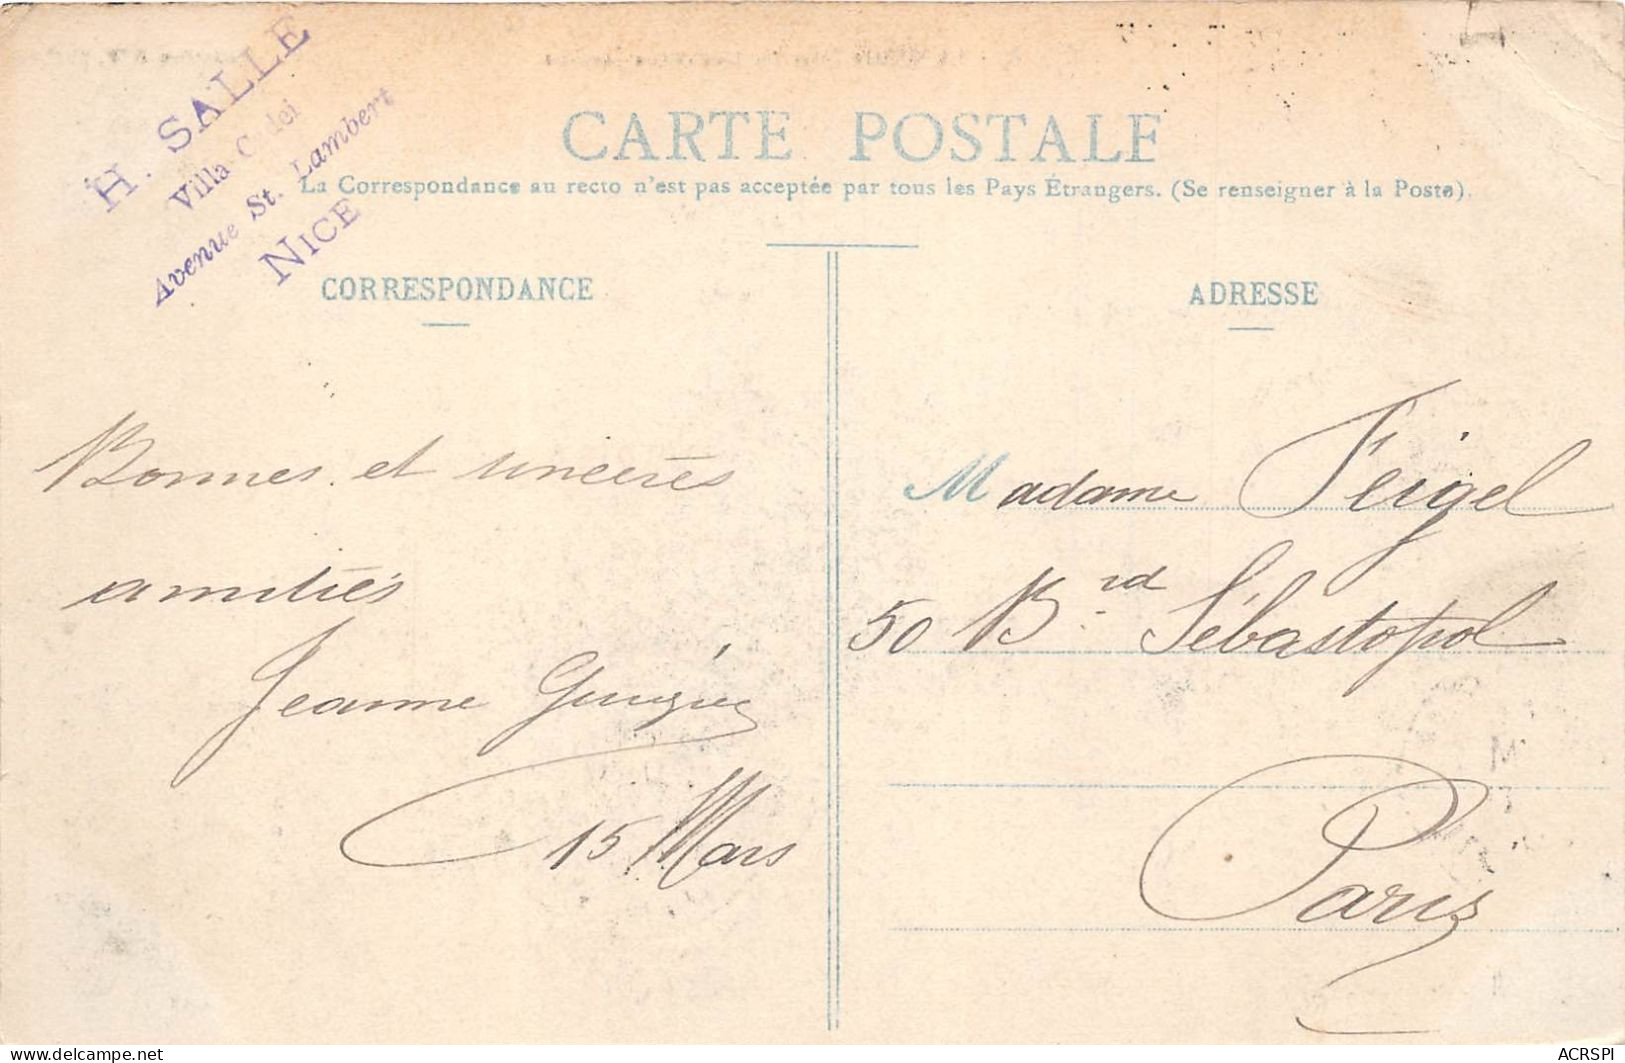 H. SALLE
Villa
Avenue St. Lambert
NICE
CARTE POSTALE
La Correspondance au recto n'est pas acceptée par tous les Pays Étrangers. (Se renseigner à la Poste).
CORRESPONDANCE
Bonnes et sincères
amitiés
Jeanne
15 Mars
ADRESSE
Madame Feigel
50 Bard Sébastopol
Paris
delcampe.net
ACRSPI